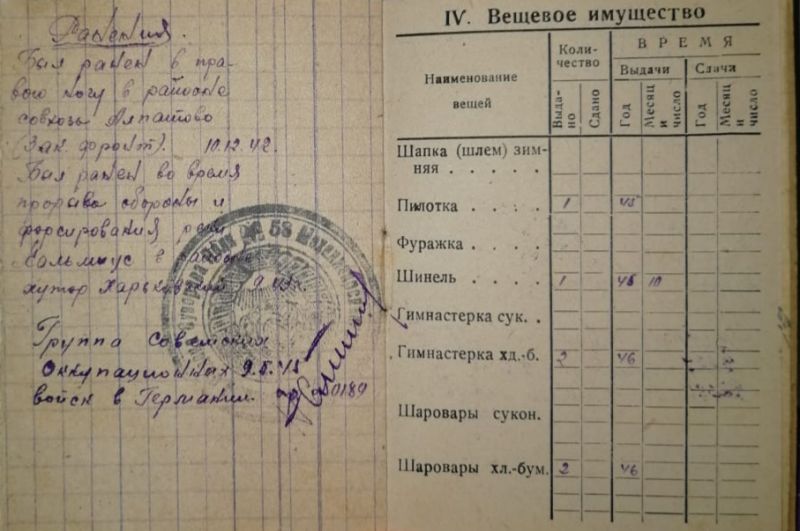 Ранения.
Был ранен в пра-
вого ногу в районе
совхозы Алпатово
(Зак. фронт). 10.12.42.
Был ранен во время
прорыва обороны и
форсирования реки
Кальмиус в районе
хутор Харьковский 9.43г.
Группа советских
оккупационных 9.5.45
войск в Германии
IV. Вещевое имущество
Наименование вещей
Коли-
чество
ВРЕМЯ
Выдачи
Сдачи
Выда-
но
Сдано
Год
Месяц и число
Год
Месяц и число
Шапка (шлем) зим-
няя . . . . .
Пилотка . . . . 1 45
Фуражка . . . .
Шинель . . . . 1 45 10
Гимнастерка сук. .
Гимнастерка хд.-б. 2 46
Шаровары сукон.
Шаровары хл.-бум. 2 46